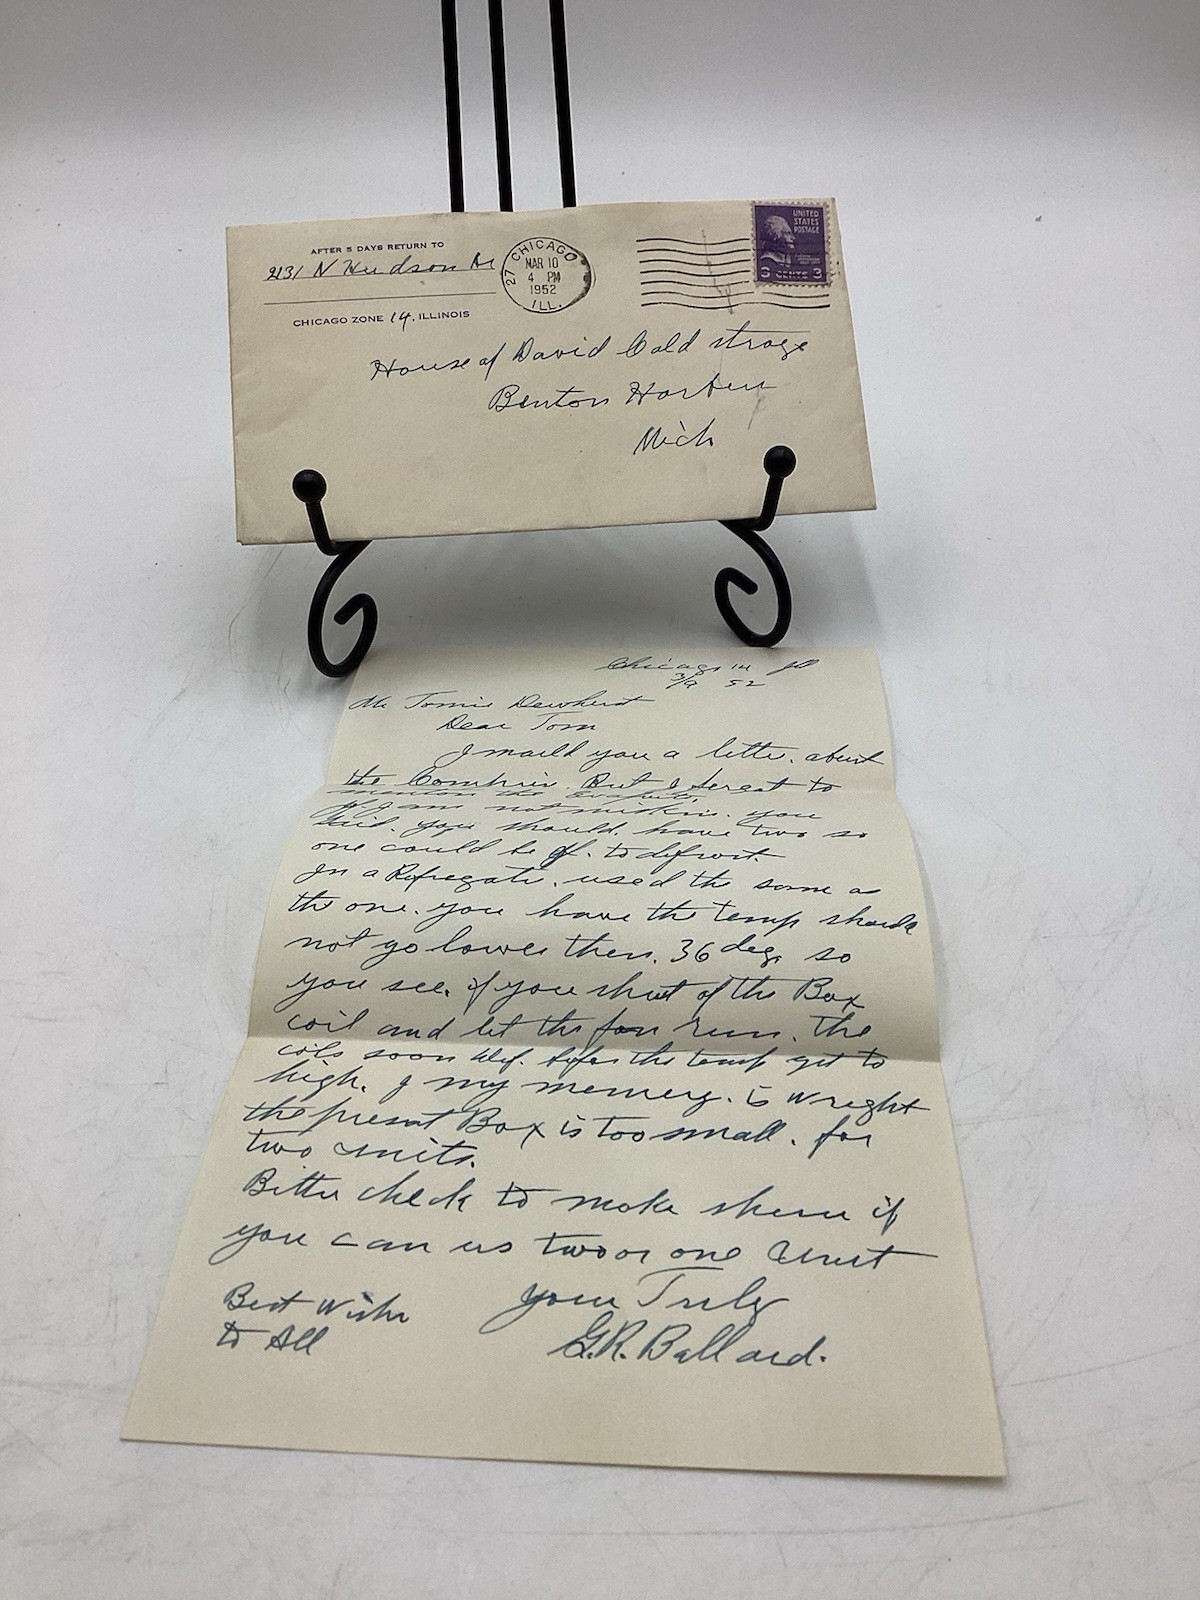 AFTER 5 DAYS RETURN TO
2131 N Hudson Av
CHICAGO ZONE 14, ILLINOIS
27 CHICAGO
MAR 10
4 PM
1952
ILL.
UNITED
STATES
POSTAGE
3 CENTS 3
House of David Cold strage
Benton Harbur
Mich
Chicago 14 Ill
3/9 52
Mr Tomie Dewhirst
Dear Tom
I maild you a letter. about
the But I forgot to
mention the
If I am not mistkin. you
said. you should. have two so
one could be of. to defrost.
In a Refregate. used the same as
the one. you have the temp should
not go lower then. 36 deg. so
you see. if you shut of the Box
coil and let the fan run. The
coils soon def. before the temp get to
high. I my memery. is wright
the present Box is too small. for
two units.
Better check to make shure if
you can us two or one Unit
Your Truly
Best Wishe
to All
G.R. Ballard.